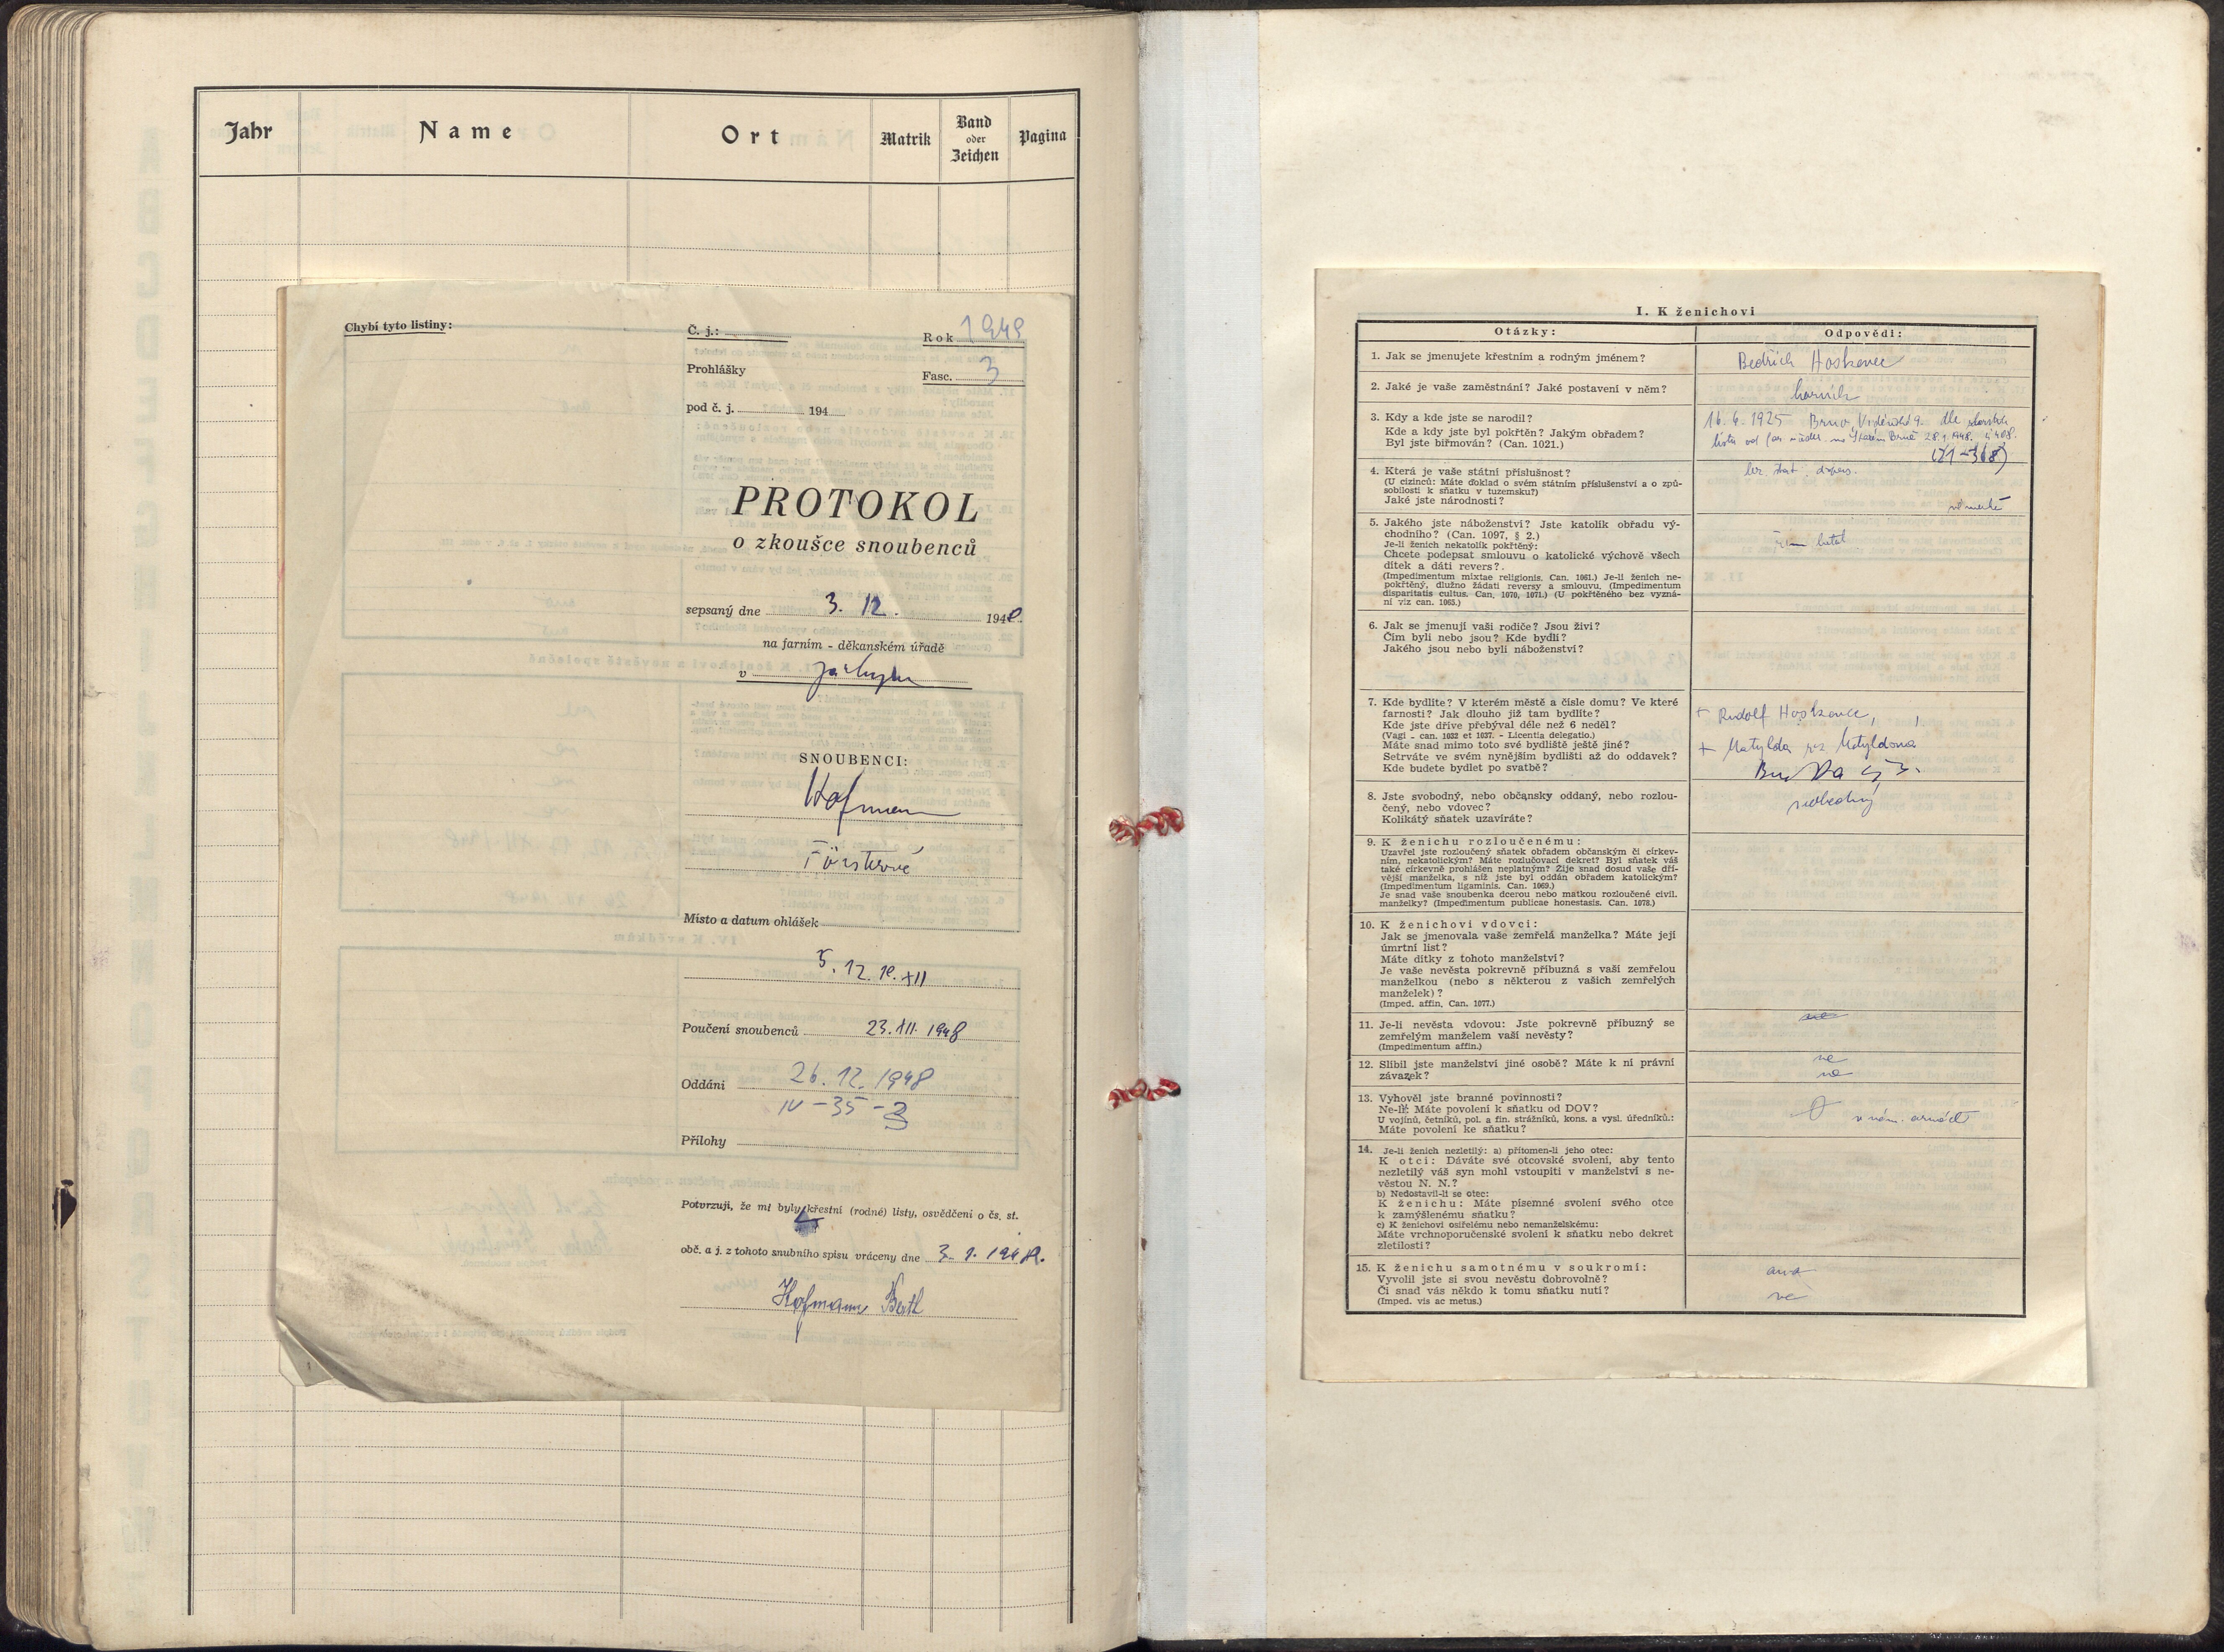 Jahr
Name
Ort
Matrik
Band
oder
Zeichen
Pagina
Chybí tyto listiny:
Č. j.:
Rok 1948
Prohlášky
Fasc. 3
pod č. j. 194
PROTOKOL
o zkoušce snoubenců
sepsaný dne 3. 12. 1948.
na farním - děkanském úřadě
v
SNOUBENCI:
Hofmann
Försterová
Místo a datum ohlášek
5. 12. 12. XII
Poučení snoubenců 23. XII. 1948
Oddáni 26. 12. 1948
IV - 35 - 3
Přílohy
Potvrzuji, že mi byly křestní (rodné) listy, osvědčení o čs. st.
obč. a j. z tohoto snubního spisu vráceny dne 3. 1.
Hofmann Berth
I. K ženichovi
Otázky:
Odpovědi:
1. Jak se jmenujete křestním a rodným jménem?
Bedřich Hoskovec
2. Jaké je vaše zaměstnání? Jaké postavení v něm?
horník
3. Kdy a kde jste se narodil?
Kde a kdy jste byl pokřtěn? Jakým obřadem?
Byl jste biřmován? (Can. 1021.)
16. 4. 1925 Brno, Vídeňská 9. dle
listu od far. na Starém Brně 28. 1. 1948.
(21-368)
4. Která je vaše státní příslušnost?
(U cizinců: Máte doklad o svém státním příslušenství a o způ-
sobilosti k sňatku v tuzemsku?)
Jaké jste národnosti?
bez stát.
německé
5. Jakého jste náboženství? Jste katolík obřadu vý-
chodního? (Can. 1097, § 2.)
Je-li ženich nekatolík pokřtěný:
Chcete podepsat smlouvu o katolické výchově všech
dítek a dáti revers?
(Impedimentum mixtae religionis. Can. 1061.) Je-li ženich ne-
pokřtěný, dlužno žádati reversy a smlouvu. (Impedimentum
disparitatis cultus. Can. 1070, 1071.) (U pokřtěného bez vyzná-
ní viz can. 1065.)
řím katol
6. Jak se jmenují vaši rodiče? Jsou živi?
Čím byli nebo jsou? Kde bydlí?
Jakého jsou nebo byli náboženství?
7. Kde bydlíte? V kterém městě a čísle domu? Ve které
farnosti? Jak dlouho již tam bydlíte?
Kde jste dříve přebýval déle než 6 neděl?
(Vagi - can. 1032 et 1037. - Licentia delegatio.)
Máte snad mimo toto své bydliště ještě jiné?
Setrváte ve svém nynějším bydlišti až do oddavek?
Kde budete bydlet po svatbě?
+ Rudolf Hoskovec,
+ Matylda roz. Matyldova
8. Jste svobodný, nebo občansky oddaný, nebo rozlou-
čený, nebo vdovec?
Kolikátý sňatek uzavíráte?
svobodný
9. K ženichu rozloučenému:
Uzavřel jste rozloučený sňatek obřadem občanským či církev-
ním, nekatolickým? Máte rozlučovací dekret? Byl sňatek váš
také církevně prohlášen neplatným? Žije snad dosud vaše dří-
vější manželka, s níž jste byl oddán obřadem katolickým?
(Impedimentum ligaminis. Can. 1069.)
Je snad vaše snoubenka dcerou nebo matkou rozloučené civil.
manželky? (Impedimentum publicae honestasis. Can. 1078.)
10. K ženichovi vdovci:
Jak se jmenovala vaše zemřelá manželka? Máte její
úmrtní list?
Máte dítky z tohoto manželství?
Je vaše nevěsta pokrevně příbuzná s vaší zemřelou
manželkou (nebo s některou z vašich zemřelých
manželek)?
(Imped. affin, Can. 1077.)
11. Je-li nevěsta vdovou: Jste pokrevně příbuzný se
zemřelým manželem vaší nevěsty?
(Impedimentum affin.)
12. Slíbil jste manželství jiné osobě? Máte k ní právní
závazek?
ne
ne
13. Vyhověl jste branné povinnosti?
Ne-li: Máte povolení k sňatku od DOV?
U vojínů, četníků, pol. a fin. strážníků, kons. a vysl. úředníků.:
Máte povolení ke sňatku?
v něm. armádě
14. Je-li ženich nezletilý: a) přítomen-li jeho otec:
K otci: Dáváte své otcovské svolení, aby tento
nezletilý váš syn mohl vstoupiti v manželství s ne-
věstou N. N.?
b) Nedostavil-li se otec:
K ženichu: Máte písemné svolení svého otce
k zamýšlenému sňatku?
c) K ženichovi osiřelému nebo nemanželskému:
Máte vrchnoporučenské svolení k sňatku nebo dekret
zletilosti?
15. K ženichu samotnému v soukromí:
Vyvolil jste si svou nevěstu dobrovolně?
Či snad vás někdo k tomu sňatku nutí?
(Imped. vis ac metus.)
ano
ne